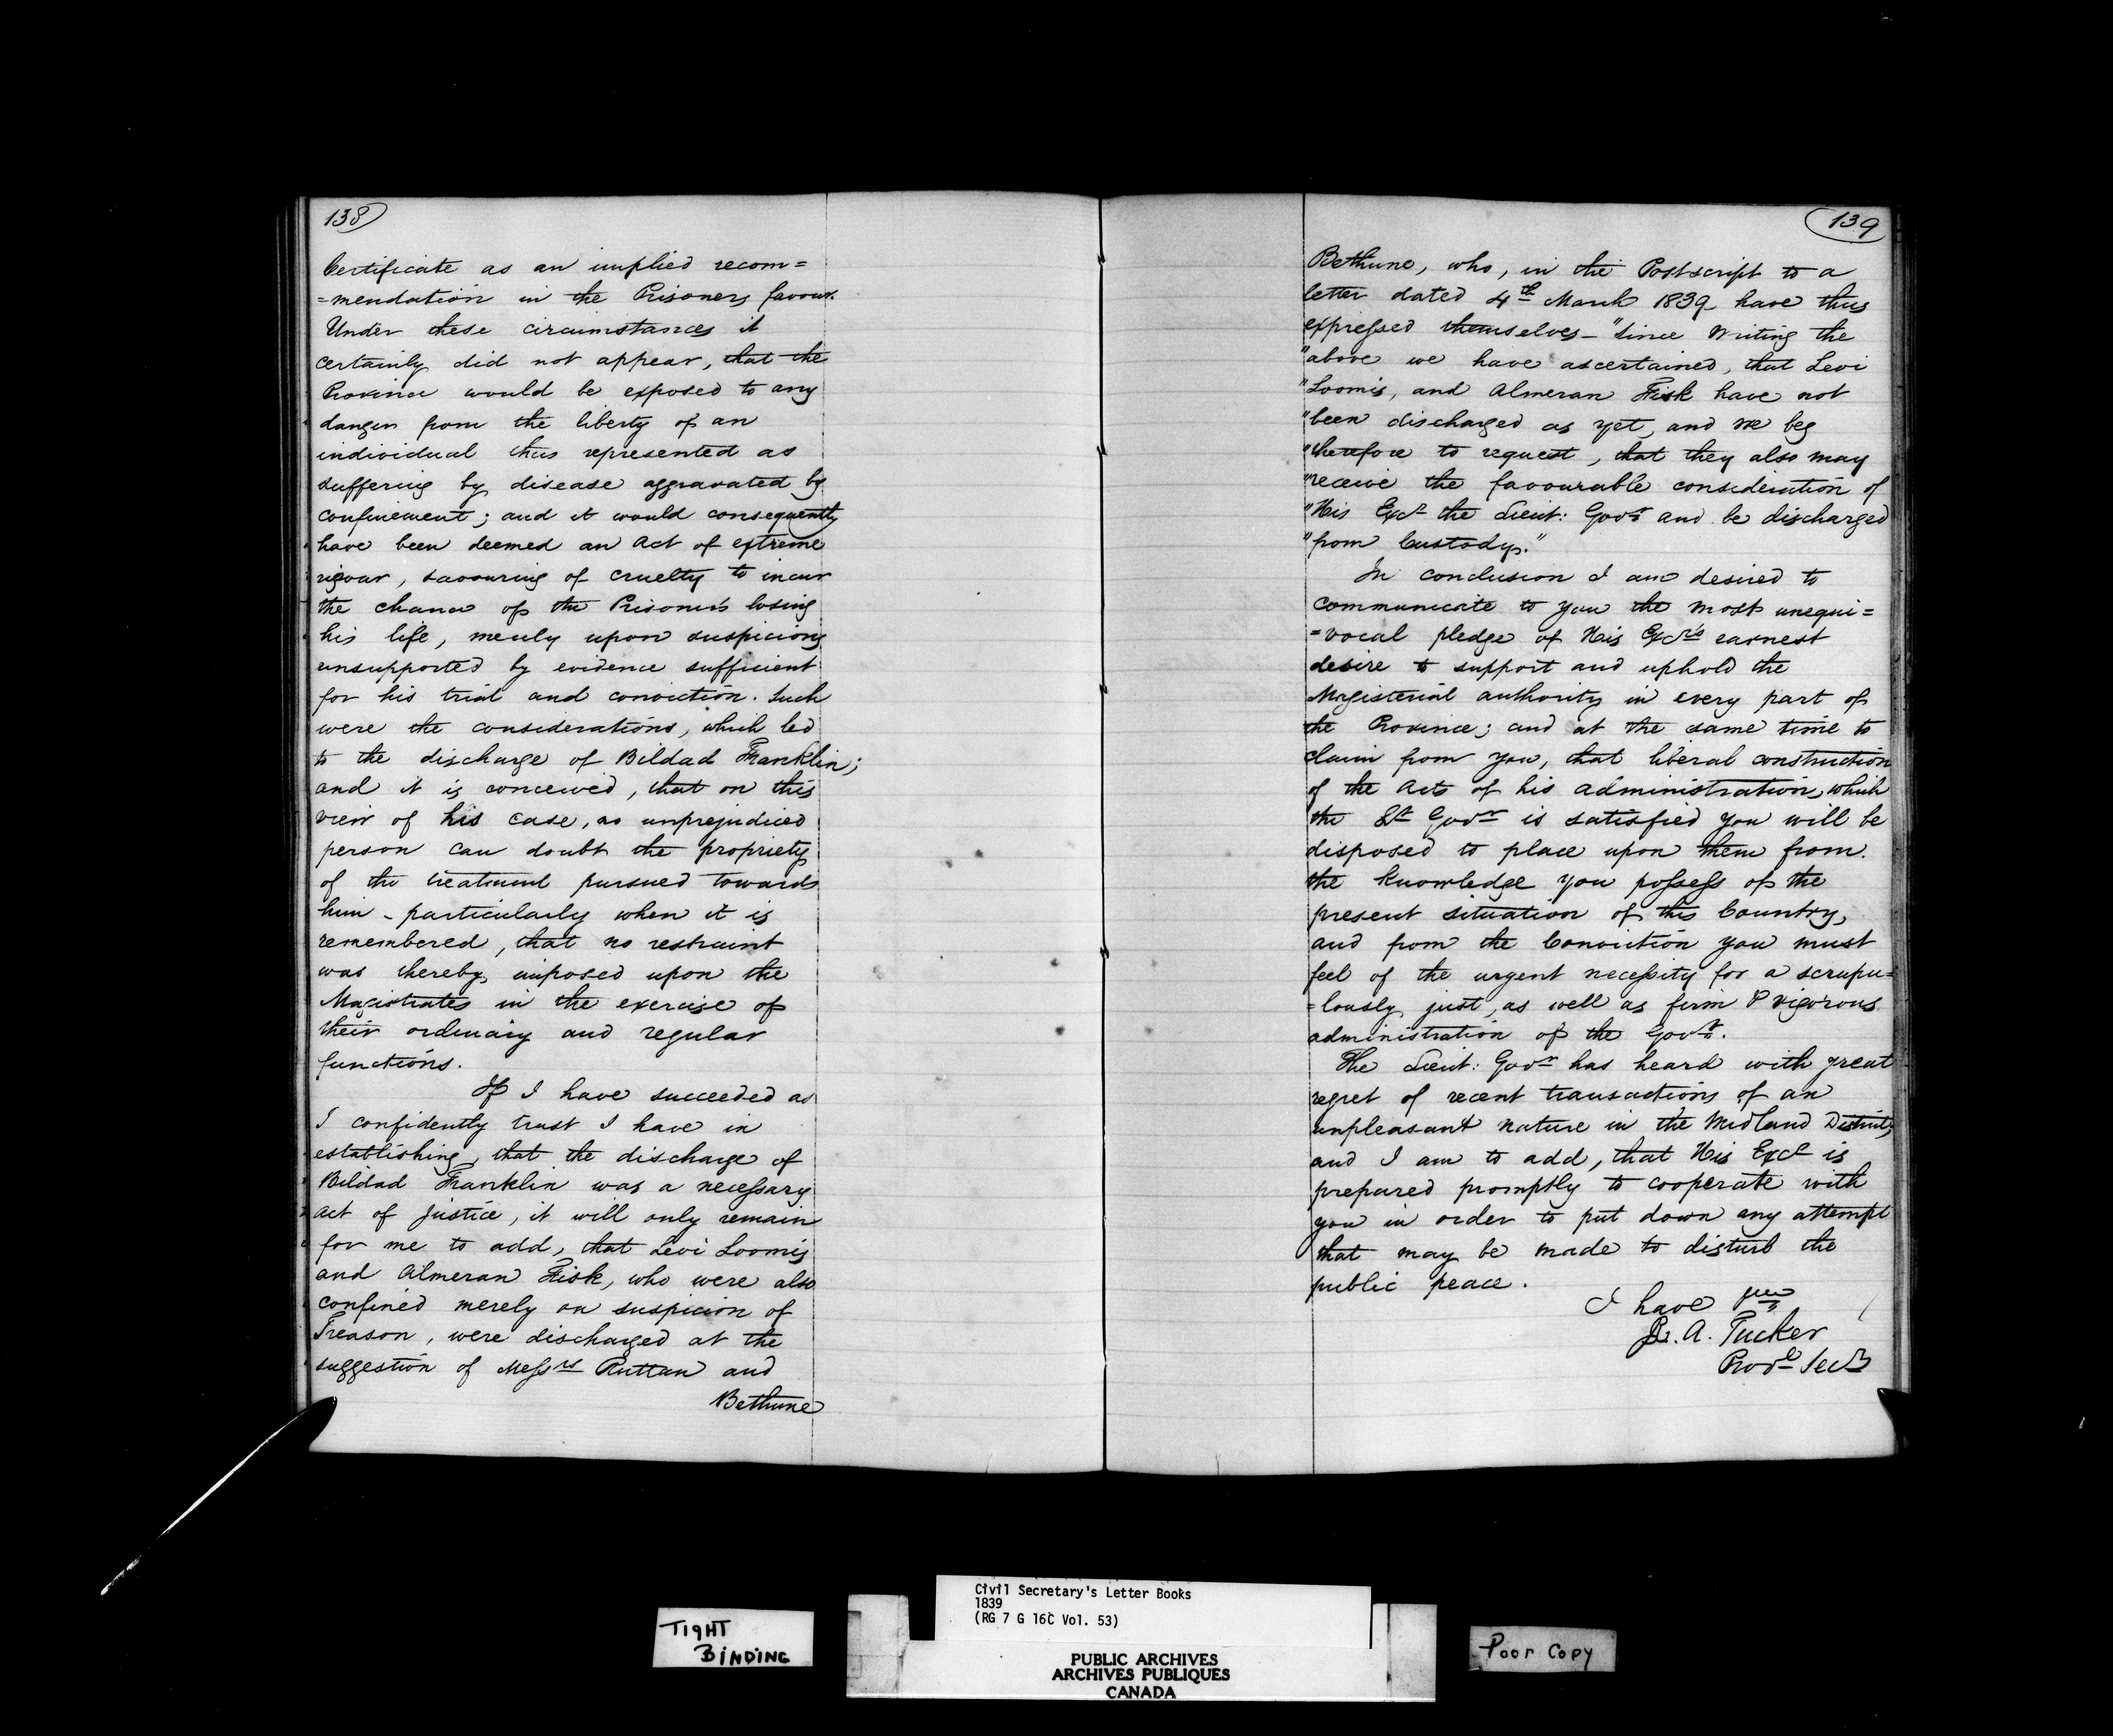 138
Certificate as an implied recom=
=mendation in the Prisoners favour.
Under these circumstances it
certainly did not appear, that the
Province would be exposed to any
danger from the liberty of an
individual thus represented as
suffering by disease aggravated by
confinement; and it would consequently
have been deemed an Act of extreme
rigour, savouring of cruelty to incur
the chance of the Prisoner's losing
his life, merely upon suspicions
unsupported by evidence sufficient
for his trial and conviction. Such
were the considerations, which led
to the discharge of Bildad Franklin;
and it is conceived, that on this
view of his case, no unprejudiced
person can doubt the propriety
of the treatment pursued towards
him - particularly when it is
remembered, that no restraint
was thereby imposed upon the
Magistrates in the exercise of
their ordinary and regular
functions.
If I have succeeded as
I confidently trust I have in
establishing, that the discharge of
Bildad Franklin was a necessary
act of justice, it will only remain
for me to add, that Levi Loomis
and Almeran Fisk, who were also
confined merely on suspicion of
Treason, were discharged at the
suggestion of Messrs Ruttan and
Bethune
139
Bethune, who, in the Postscript to a
letter dated 4th March 1839 have thus
expressed themselves - "Since writing the
"above we have ascertained, that Levi
"Loomis, and Almeran Fisk have not
"been discharged as yet, and we beg
"therefore to request, that they also may
"receive the favourable consideration of
"His Excy the Lieut: Govr and be discharged
"from Custody."
In conclusion I am desired to
communicate to you the most unequi=
=vocal pledge of His Excy's earnest
desire to support and uphold the
Magisterial authority in every part of
the Province; and at the same time to
claim from you, that liberal construction
of the Acts of his administration, which
the Lt Govr is satisfied you will be
disposed to place upon them from
the knowledge you possess of the
present situation of this Country,
and from the Conviction you must
feel of the urgent necessity for a scrupu=
=lously just, as well as firm & vigorous
administration of the Govt.
The Lieut: Govr has heard with great
regret of recent transactions of an
unpleasant nature in the Midland District,
and I am to add, that His Excy is
prepared promptly to cooperate with
you in order to put down any attempt
that may be made to disturb the
public peace.
I have
R. A. Tucker
Provl Secy
Civil Secretary's Letter Books
1839
(RG 7 G 16C Vol. 53)
TIGHT
BINDING
PUBLIC ARCHIVES
ARCHIVES PUBLIQUES
CANADA
Poor Copy